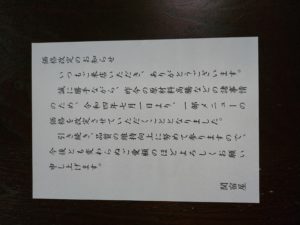 価格改定のお知らせ
いつもご来店いただき、ありがとうございます。
誠に勝手ながら、昨今の原材料高騰などの諸事情
のため、令和四年七月一日より、一部メニューの
価格を改定させていただくこととなりました。
引き続き、品質の維持向上に努めて参りますので、
今後とも変わらぬご愛顧のほどよろしくお願い
申し上げます。
関宿屋